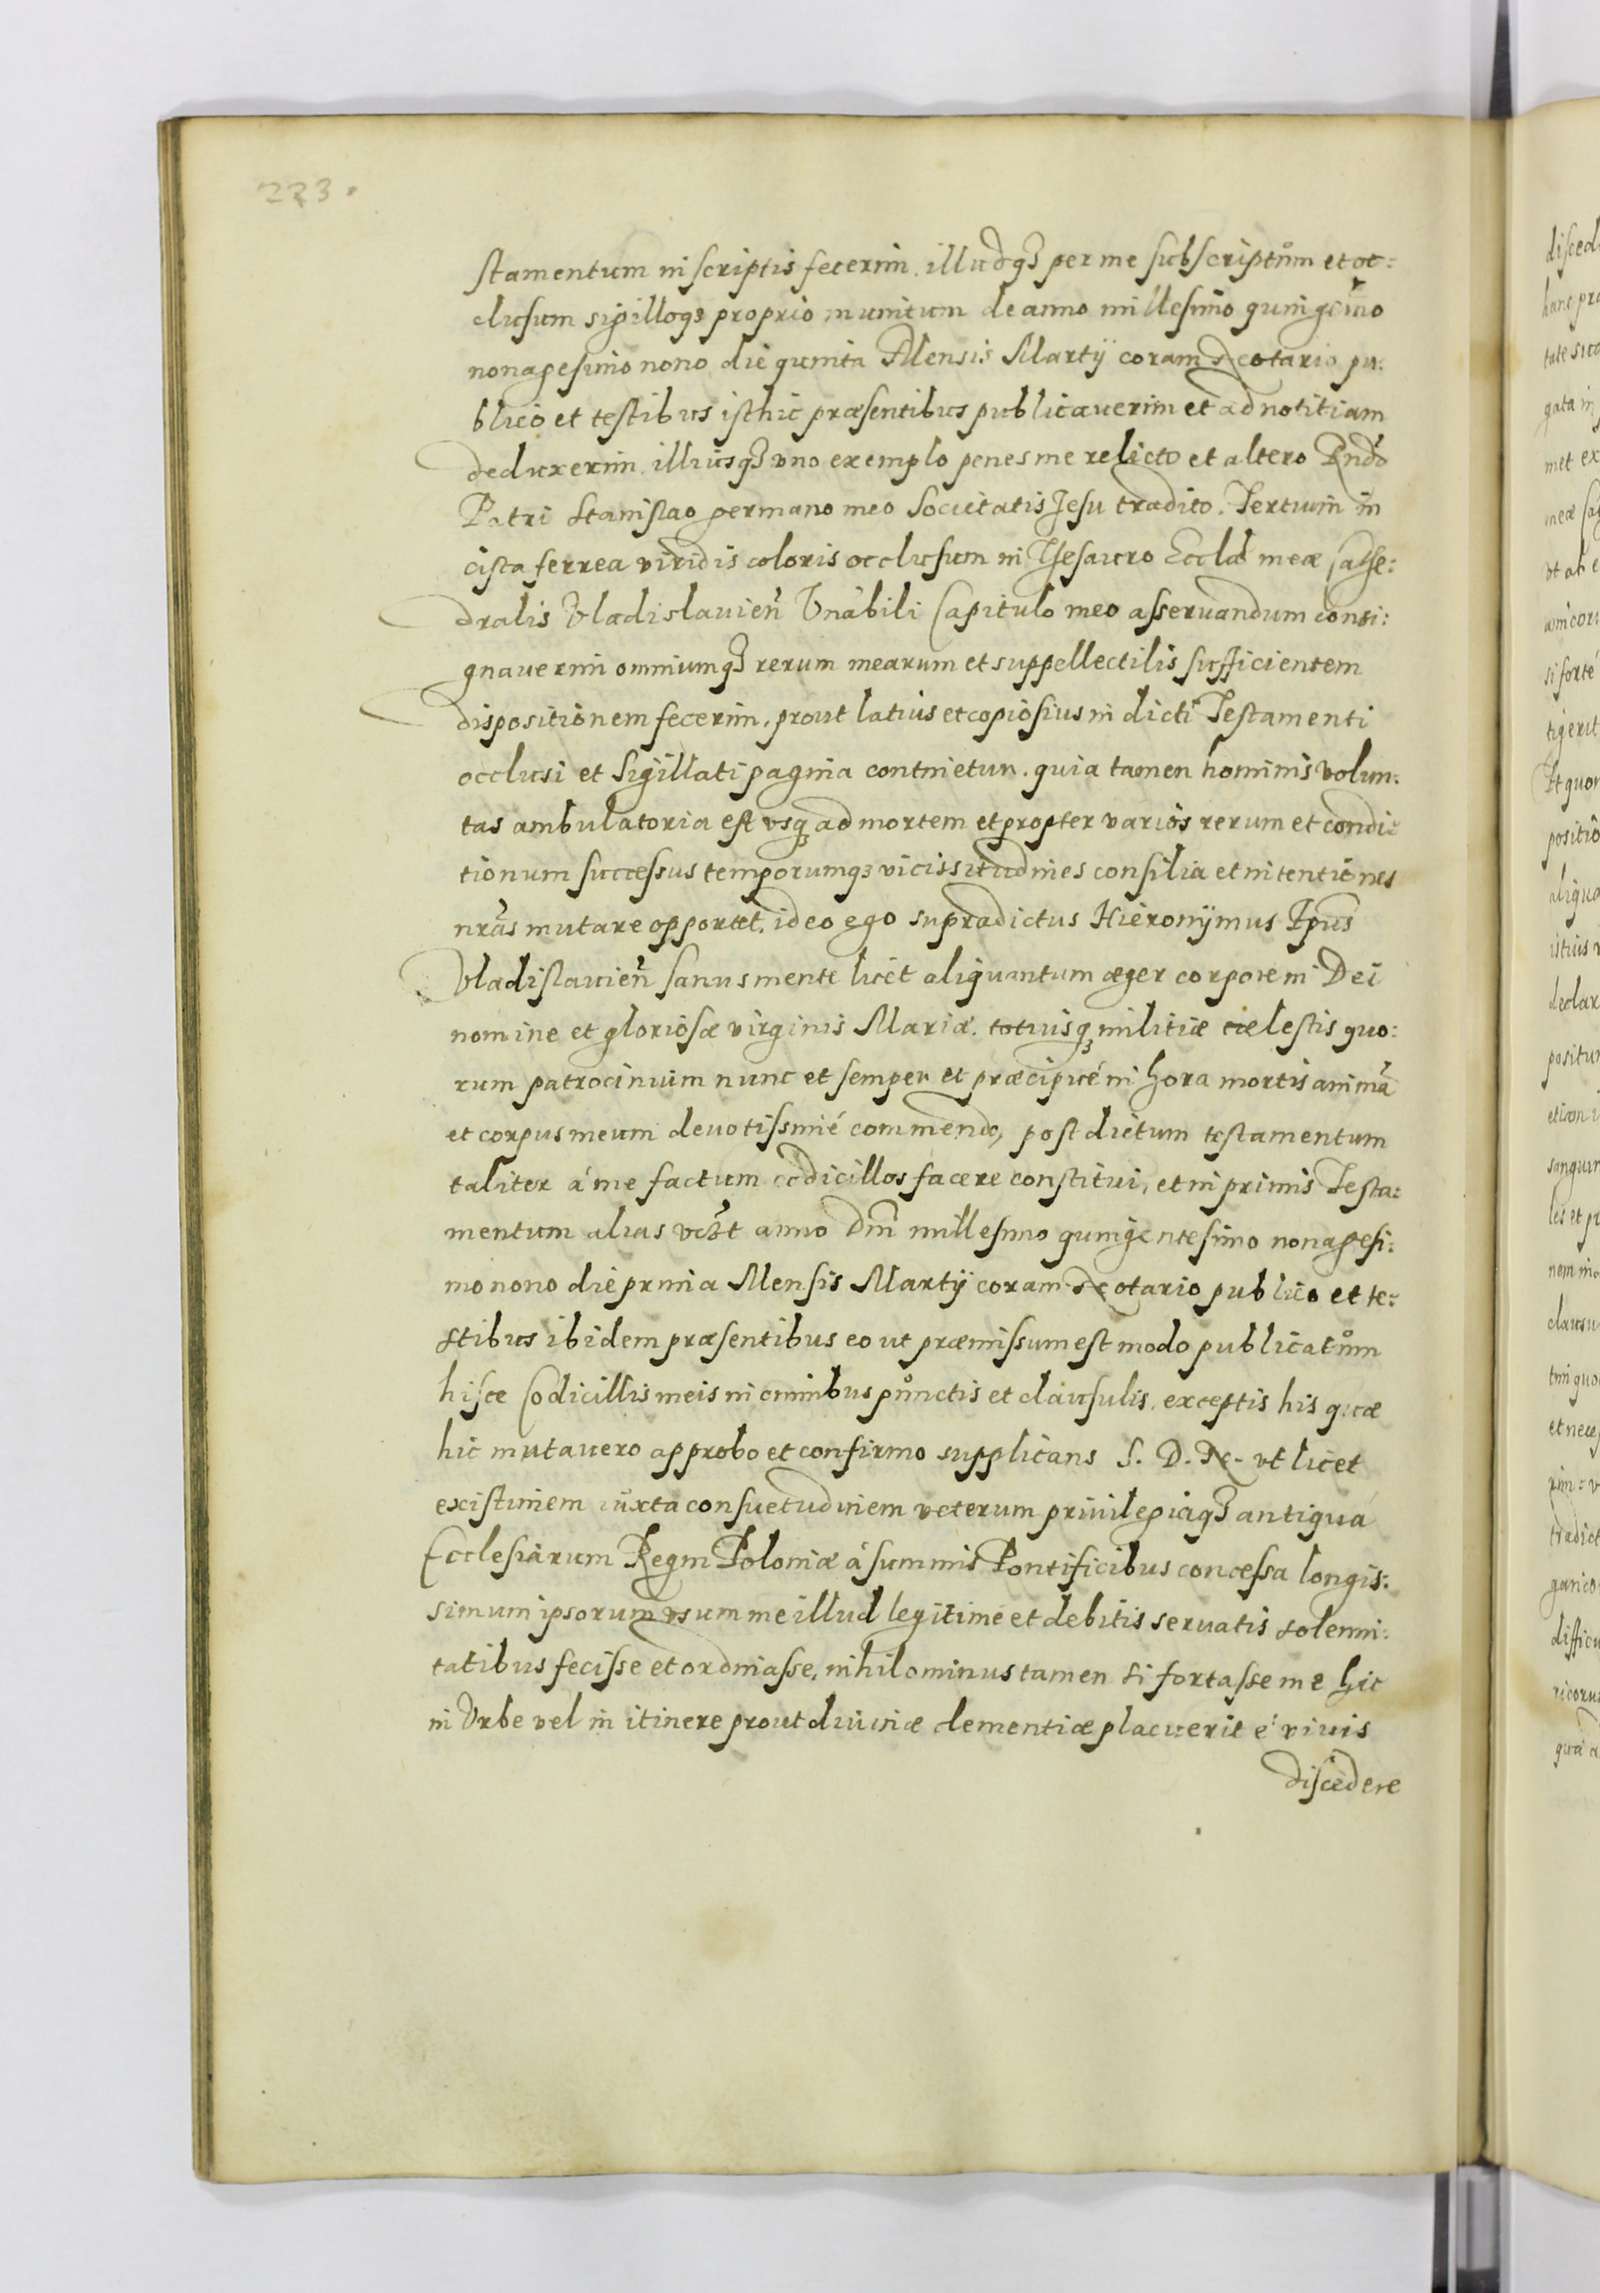 223.
stamentum in scriptis fecerim, illudq3 per me subscriptům et oc:
clusum sigilloq3 proprio munitum de anno millesimo quingẽmo
nonagesimo nono die quinta Mensis Martÿ coram Notario pu:
blico et testibus isthic præsentibus publicaverim et ad notitiam
deduxerim, illiusq3 vno exemplo penes me relicto et altero Rndo
Patri Stanislao germano meo Societatis Jesu tradito. Tertium in
cista ferrea viridis coloris occlusum in Thesauro Eccla meæ Cathe:
dralis Vladislavien̄ Vnābili Capitulo meo asservandum consi:
gnaverim omniumq3 rerum mearum et suppellectilis sufficientem
dispositionem fecerim, prout latius et copiosius in dicti Testamenti
occlusi et Sigillati pagina continetur. quia tamen hominis volun:
tas ambulatoria est vsq3 ad mortem et propter varios rerum et condi:
tionum successus temporumq3 vicissitudines consilia et intentiones
nr̃as mutare opportet, ideo ego supradictus Hieronÿmus Ep̃us
Vladislavien̄ sanus mente licet aliquantum æger corpore in Dei
nomine et gloriosæ virginis Mariæ. totiusq3 militiæ cælestis quo:
rum patrocinium nunc et semper et præcipué in hora mortis animā
et corpus meum devotissimé commendo, post dictum testamentum
taliter á me factum codicillos facere constitui, et in primis Testa:
mentum alias vc3t anno Dm̄ millesimo quingentesimo nonagesi:
mo nono die prima Mensis Martÿ coram Notario publico et te:
stibus ibidem præsentibus eo ut præmissum est modo publicatům
hisce Codicillis meis in omnibus půnctis et clausulis, exceptis his quæ
hic mutavero approbo et confirmo supplicans S. D. N. vt licet
existimem iuxta consuetudinem veterum privilegiaq3 antiqua
Ecclesiarum Regm Poloniæ á summis Pontificibus concessa longis:
simum ipsorum vsum me illud legitimé et debitis servatis solemni:
tatibus fecisse et ordinasse, nihilominus tamen si fortasse me hic
in Vrbe vel in itinere prout divinæ clementiæ placuerit é vivis
discedere